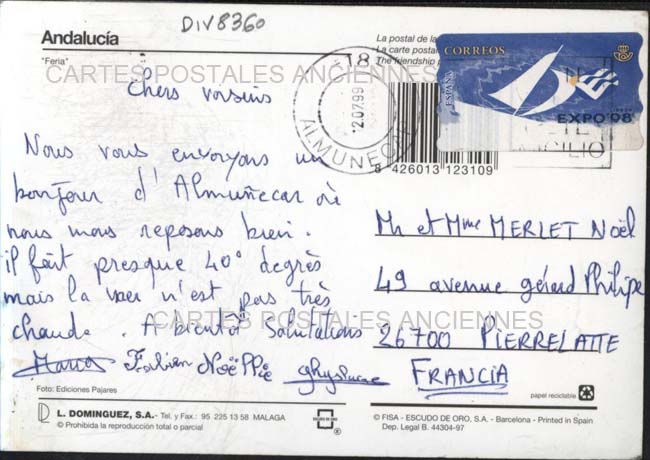 DIV8360
Andalucía
"Feria"
La postal de la
La carte postal
The friendship p
CARTES POSTALES ANCIENNES
18
2.07.99
ALMUÑECAR
CORREOS
ESPAÑA
EXPO'98
8 426013 123109
Chers voisins
Nous vous envoyons un
bonjour d'Almuñecar où
nous nous reposons bien.
il fait presque 40° degrés
mais la mer n'est pas très
chaude. A bientôt Salutations
Fabien Noëllie
Mr et Mme MERLET Noël
49 avenue gérard Philipe
CARTES POSTALES ANCIENNES
26700 PIERRELATTE
FRANCIA
Foto: Ediciones Pajares
papel reciclable
L. DOMINGUEZ, S.A. - Tel. y Fax.: 95 225 13 58 MALAGA
© Prohibida la reproducción total o parcial
© FISA - ESCUDO DE ORO, S.A. - Barcelona - Printed in Spain
Dep. Legal B. 44304-97